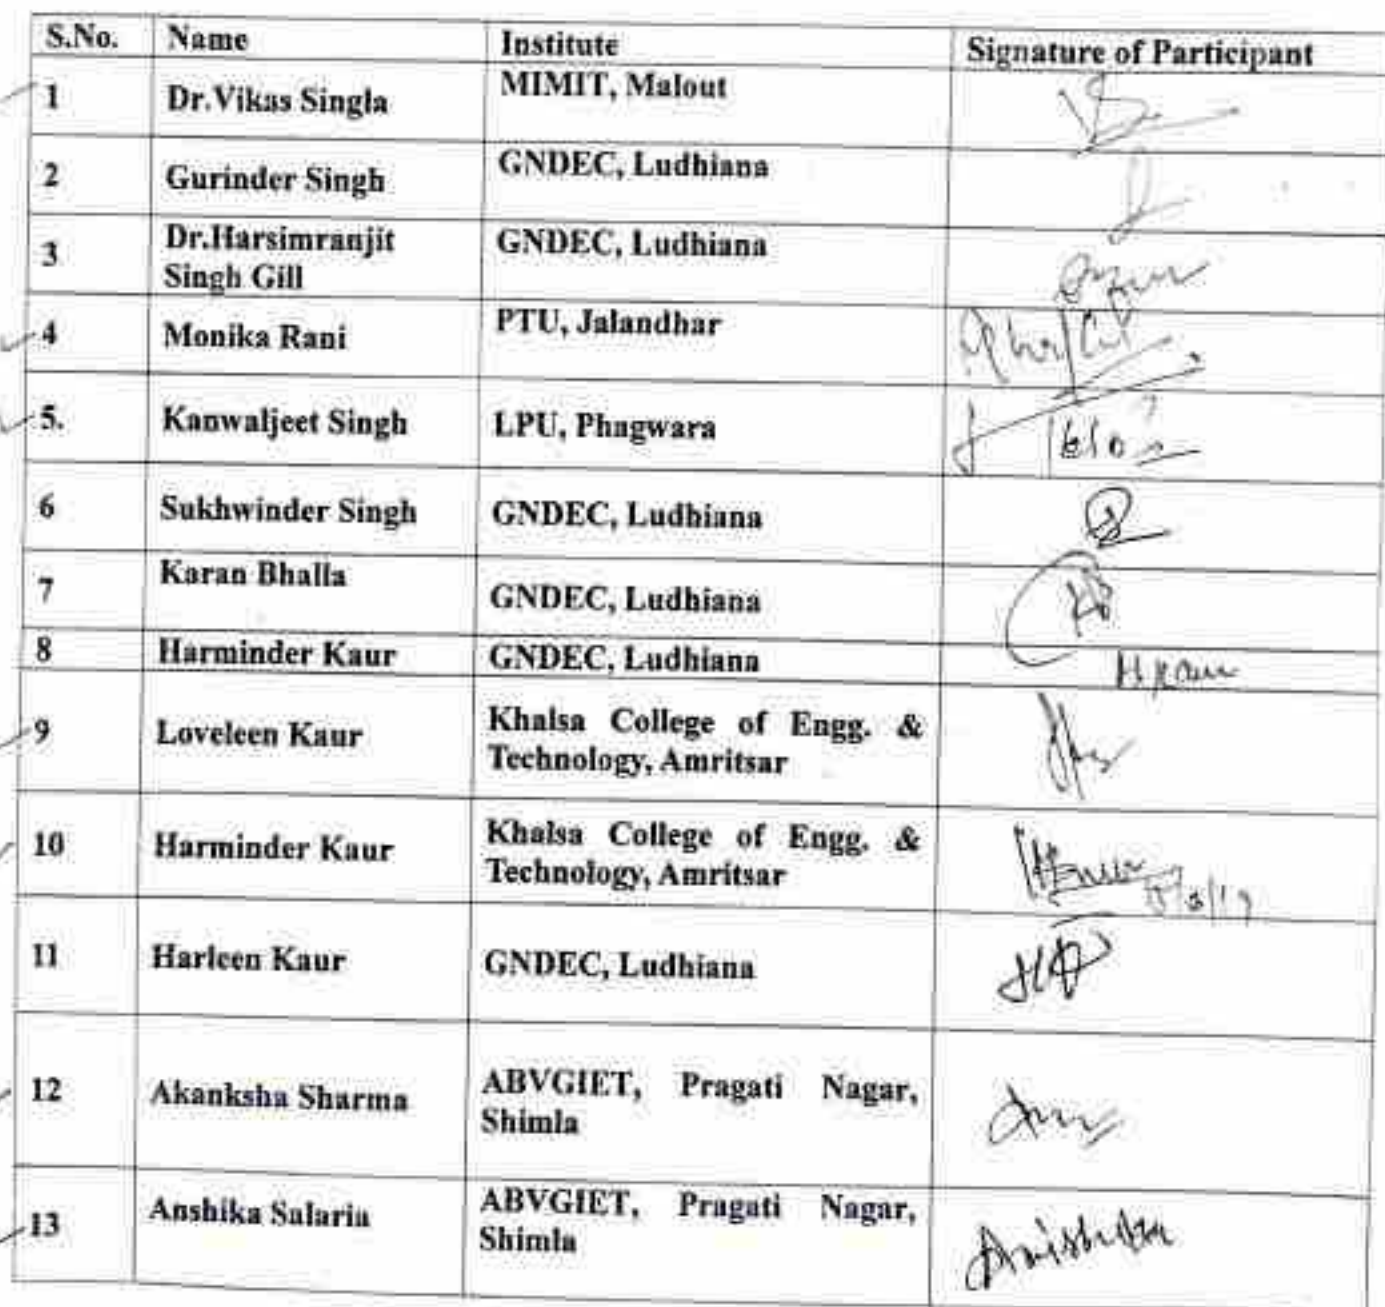 S.No. Name Institute Signature of Participant
1 Dr.Vikas Singla MIMIT, Malout
2 Gurinder Singh GNDEC, Ludhiana
3 Dr.Harsimranjit Singh Gill GNDEC, Ludhiana
4 Monika Rani PTU, Jalandhar
5. Kanwaljeet Singh LPU, Phagwara
6 Sukhwinder Singh GNDEC, Ludhiana
7 Karan Bhalla GNDEC, Ludhiana
8 Harminder Kaur GNDEC, Ludhiana H Kaur
9 Loveleen Kaur Khalsa College of Engg. &
Technology, Amritsar
10 Harminder Kaur Khalsa College of Engg. &
Technology, Amritsar
11 Harleen Kaur GNDEC, Ludhiana
12 Akanksha Sharma ABVGIET, Pragati Nagar,
Shimla
13 Anshika Salaria ABVGIET, Pragati Nagar,
Shimla